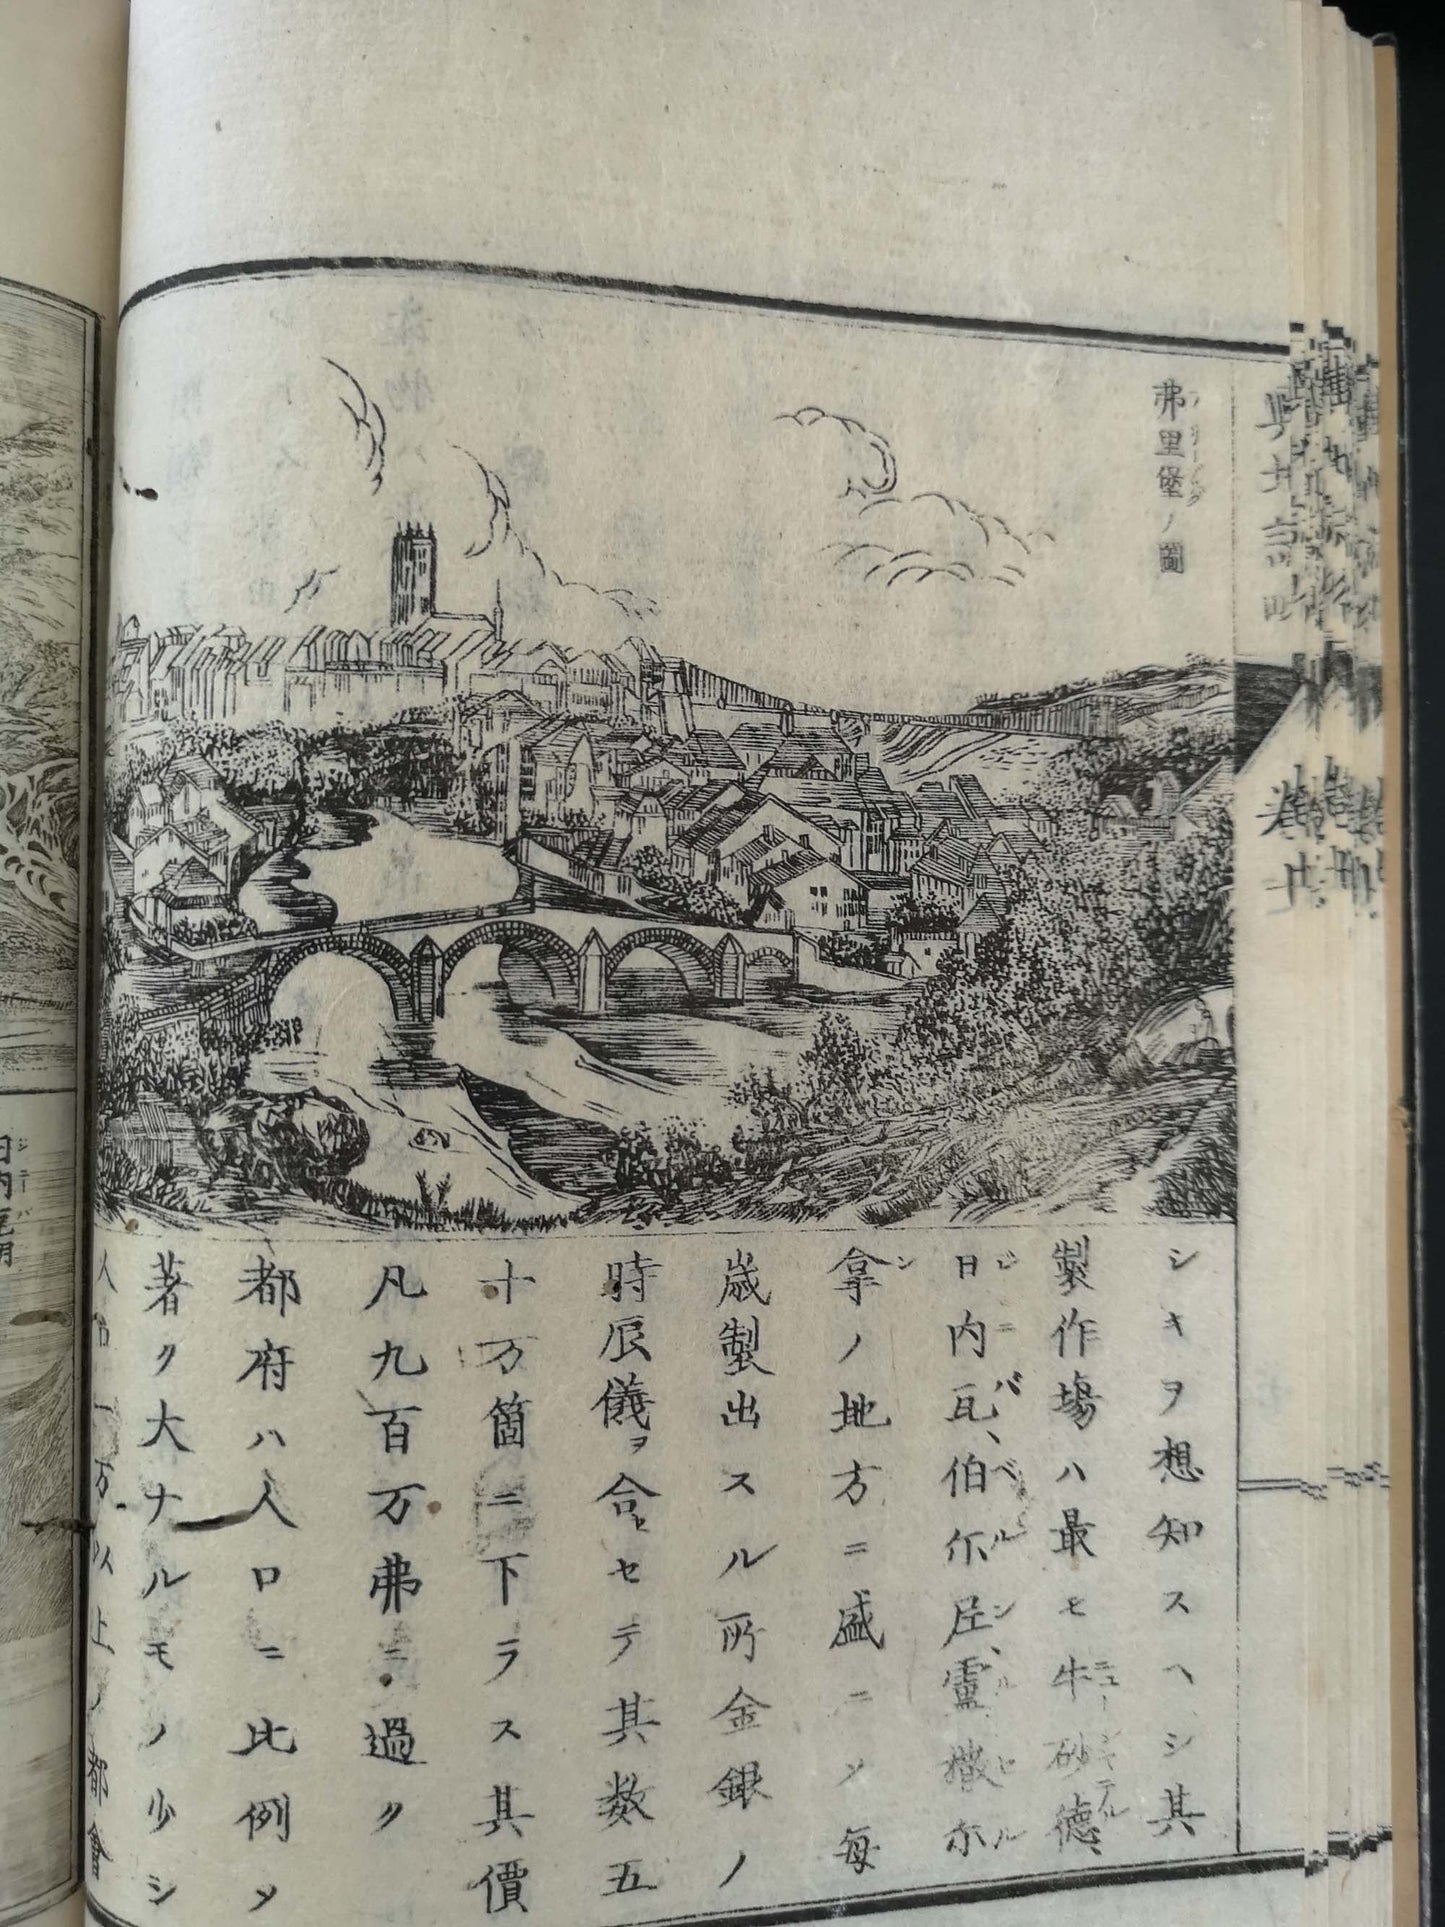 弗里堡ノ圖
シキヲ想知スヘシ其
製作場ハ最モ牛砂德、
日内瓦、伯尓尼、靈撒尓
拿ノ地方ニ盛ニソ每
歳製出スル所金銀ノ
時辰儀ヲ合セテ其数五
十万箇ニ下ラス其價
凡九百万弗ニ過ク
都府ハ人口ニ比例メ
著ク大ナルモノ少シ
人口一万以上ノ都會